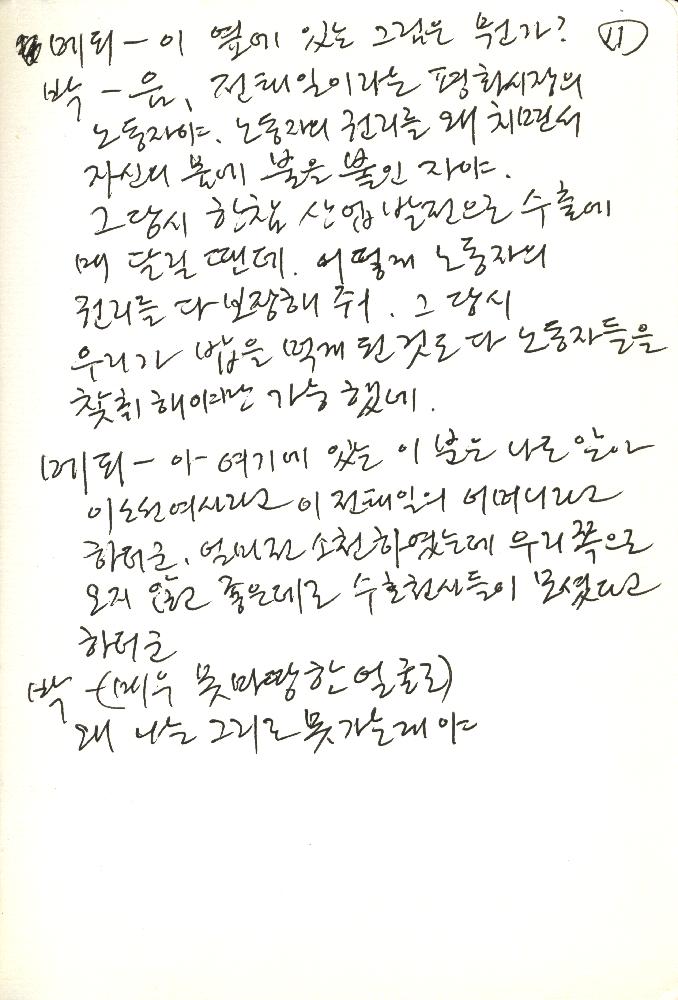 메퇴 - 이 옆에 있는 그림은 뭔가? 11
박 - 음, 전태일이라는 평화시장의
노동자야. 노동자의 권리를 왜 치면서
자신의 몸에 불을 붙인 자야.
그 당시 한참 산업발전으로 수출에
매 달릴 땐데. 어떻게 노동자의
권리를 다 보장해 줘. 그 당시
우리가 밥을 먹게 된것도 다 노동자들을
착취해야만 가능 했네.
메퇴 - 아 여기에 있는 이 분은 나도 알아
이소선여사라고 이 전태일의 어머니라고
하더군. 얼마전 소천하였는데 우리쪽으로
오지 않고 좋은데로 수호천사들이 모셨다고
하더군
박 - (매우 못마땅한 얼굴로)
왜 나는 그리로 못가는 거야